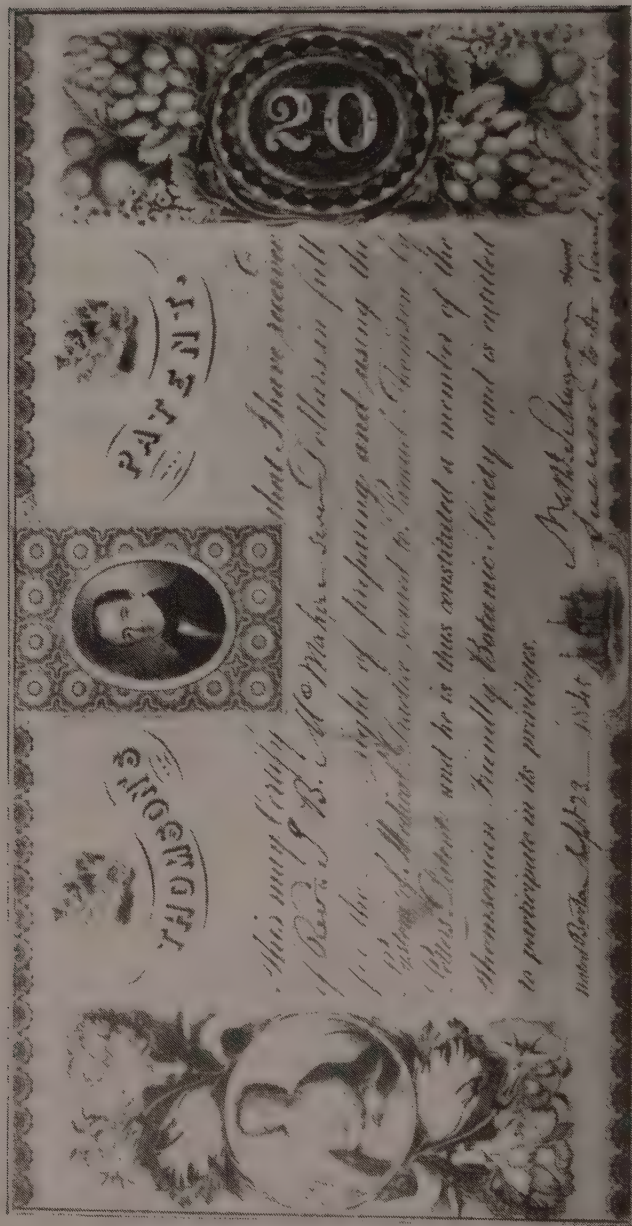 THOMSON'S PATENT.
20
This may Certify that I have received
of Rev'd J B. McMahon seven Dollars in full
for the right of preparing and using the
System of Medical Practice secured to Samuel Thomson by
Letters Patent and he is thus constituted a member of the
Thomsonian Friendly Botanic Society and is entitled
to participate in its privileges.
Sept 23 1840